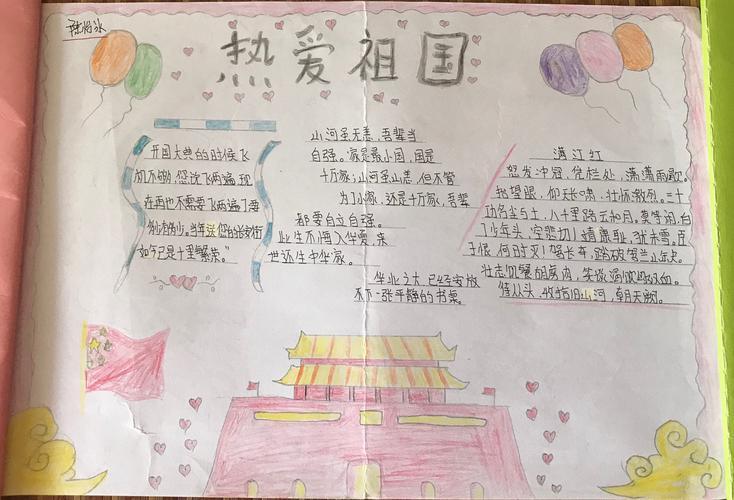 热爱祖国
开国大典的时候飞
机不够,您说飞两遍,现
在再也不需要飞两遍了要
多少有多少。当年送您的长安街
如今已是十里繁荣。"
山河虽无恙,吾辈当
自强。家是最小国,国是
十万家;山河虽无恙,但不管
为了小家,还是千万家,吾辈
都要自立自强。
此生不悔入华夏,来
世还生中华家。
华业之大 已经安放
不下一张平静的书桌。
满江红
怒发冲冠,凭栏处,潇潇雨歇。
抬望眼,仰天长啸,壮怀激烈。三十
功名尘与土,八千里路云和月。莫等闲,白
了少年头,空悲切!靖康耻,犹未雪。臣
子恨,何时灭!驾长车,踏破贺兰山缺。
壮志饥餐胡虏肉,笑谈渴饮匈奴血。
待从头,收拾旧山河,朝天阙。